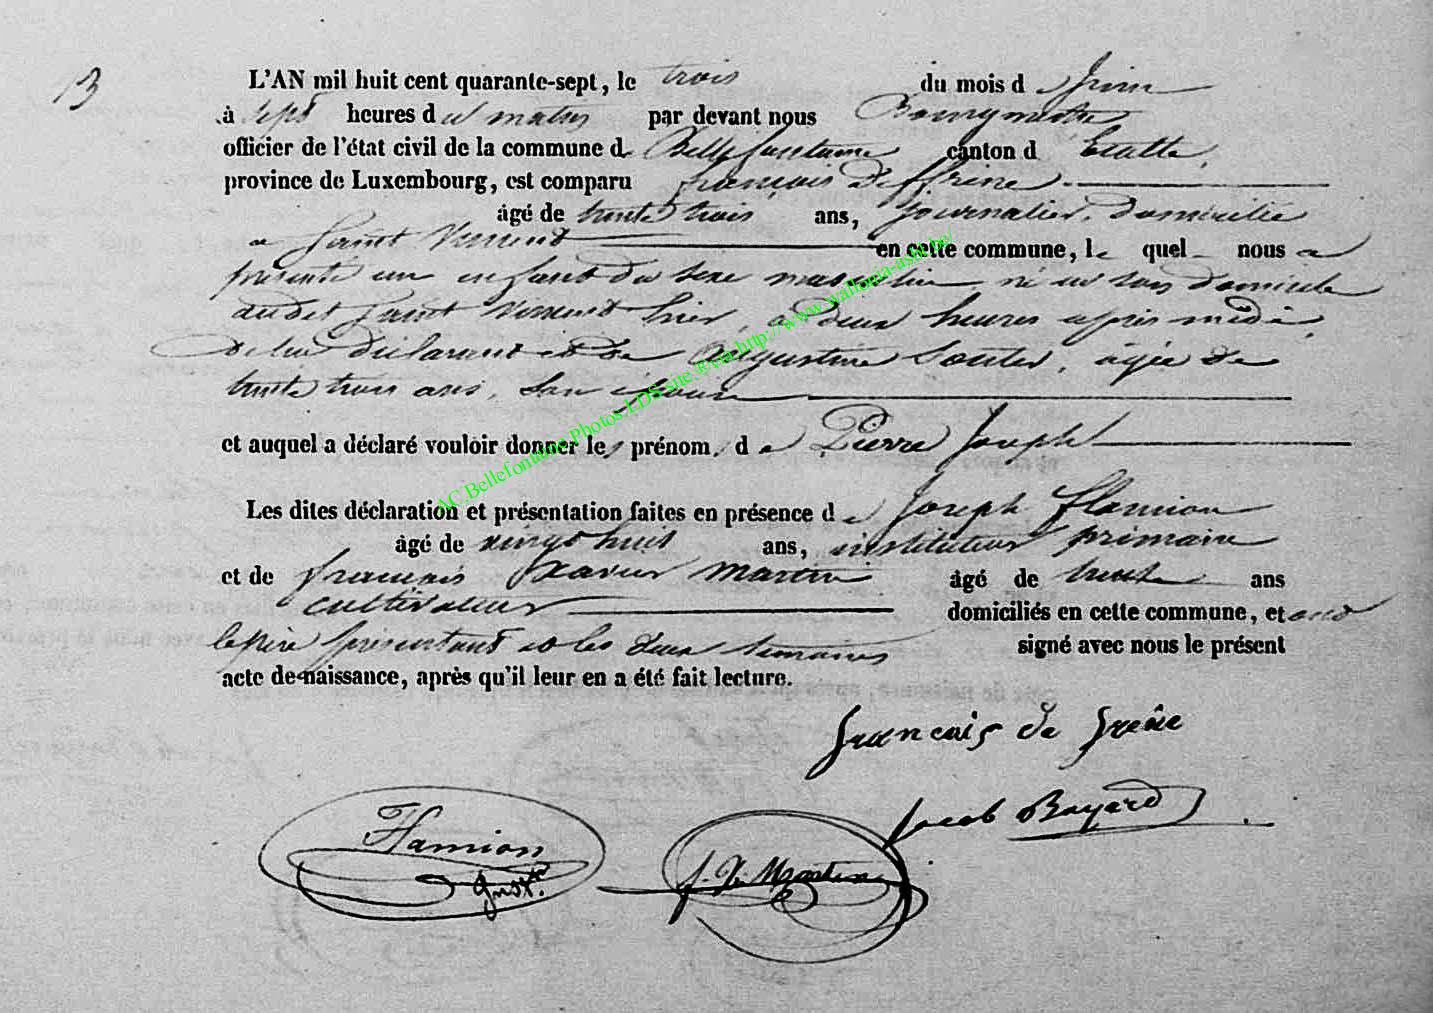 13
L'AN mil huit cent quarante-sept, le trois du mois d e juin
à sept heures d u matin par devant nous Bourgmestre
officier de l'état civil de la commune de Bellefontaine canton d' Etalle,
province de Luxembourg, est comparu françois deffrène
âgé de trente trois ans, journalier, domicilié
à Saint Vincent en cette commune, le quel nous a
présenté un enfant du sexe masculin né en son domicile
audit Saint Vincent hier, à deux heures après midi,
de lui déclarant et de Augustine Souter, âgée de
trente trois ans, son épouse
et auquel a déclaré vouloir donner les prénoms d e Pierre Joseph
Les dites déclaration et présentation faites en présence d e Joseph flamion
âgé de vingt huit ans, instituteur primaire
et de françois Xavier Martin âgé de trente ans
cultivateur domiciliés en cette commune, et ont
le père présentant et les deux témoins signé avec nous le présent
acte de naissance, après qu'il leur en a été fait lecture.
francois de frêne
Jacob Bayard
Flamion
Inst.r
f. X. Martin
AC.Bellefontaine.Photos.LDS.site @via http://www.wallonia-asbl.be/